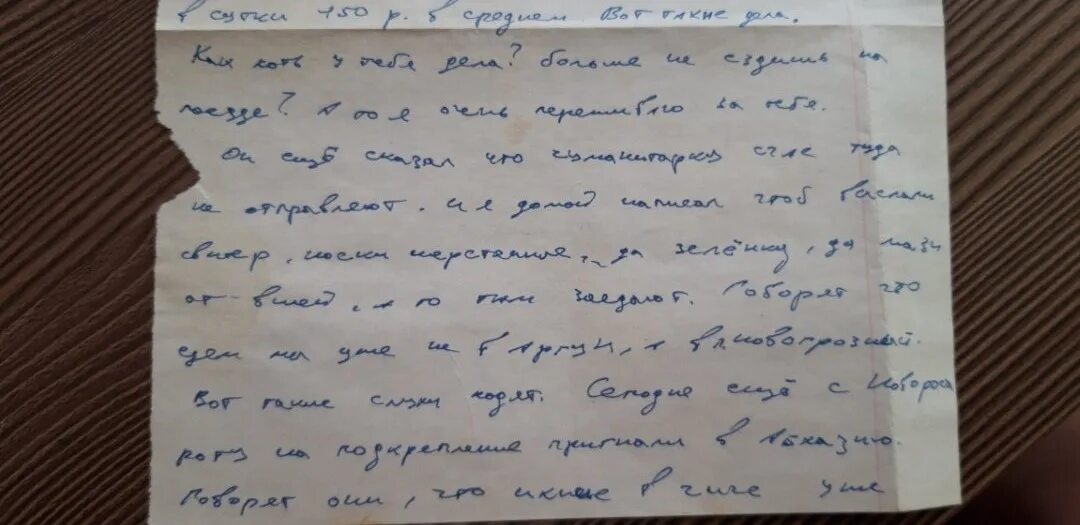 в сутки 450 р. в среднем. Вот такие дела.
Как хоть у тебя дела? больше не ездишь на
поезде? А то я очень переживаю за тебя.
Он ещё сказал что гуманитарку туда
не отправляют. И я домой написал чтоб выслали
свитер, носки шерстяные, да зелёнку, да мази
от вшей, а то там заедают. Говорят что
едем мы уже не в Аргун, а в п. Новогрозный.
Вот такие слухи ходят. Сегодня ещё с Новорос
роту на подкрепление пригнали в Абхазию.
Говорят они, что в чиче уже